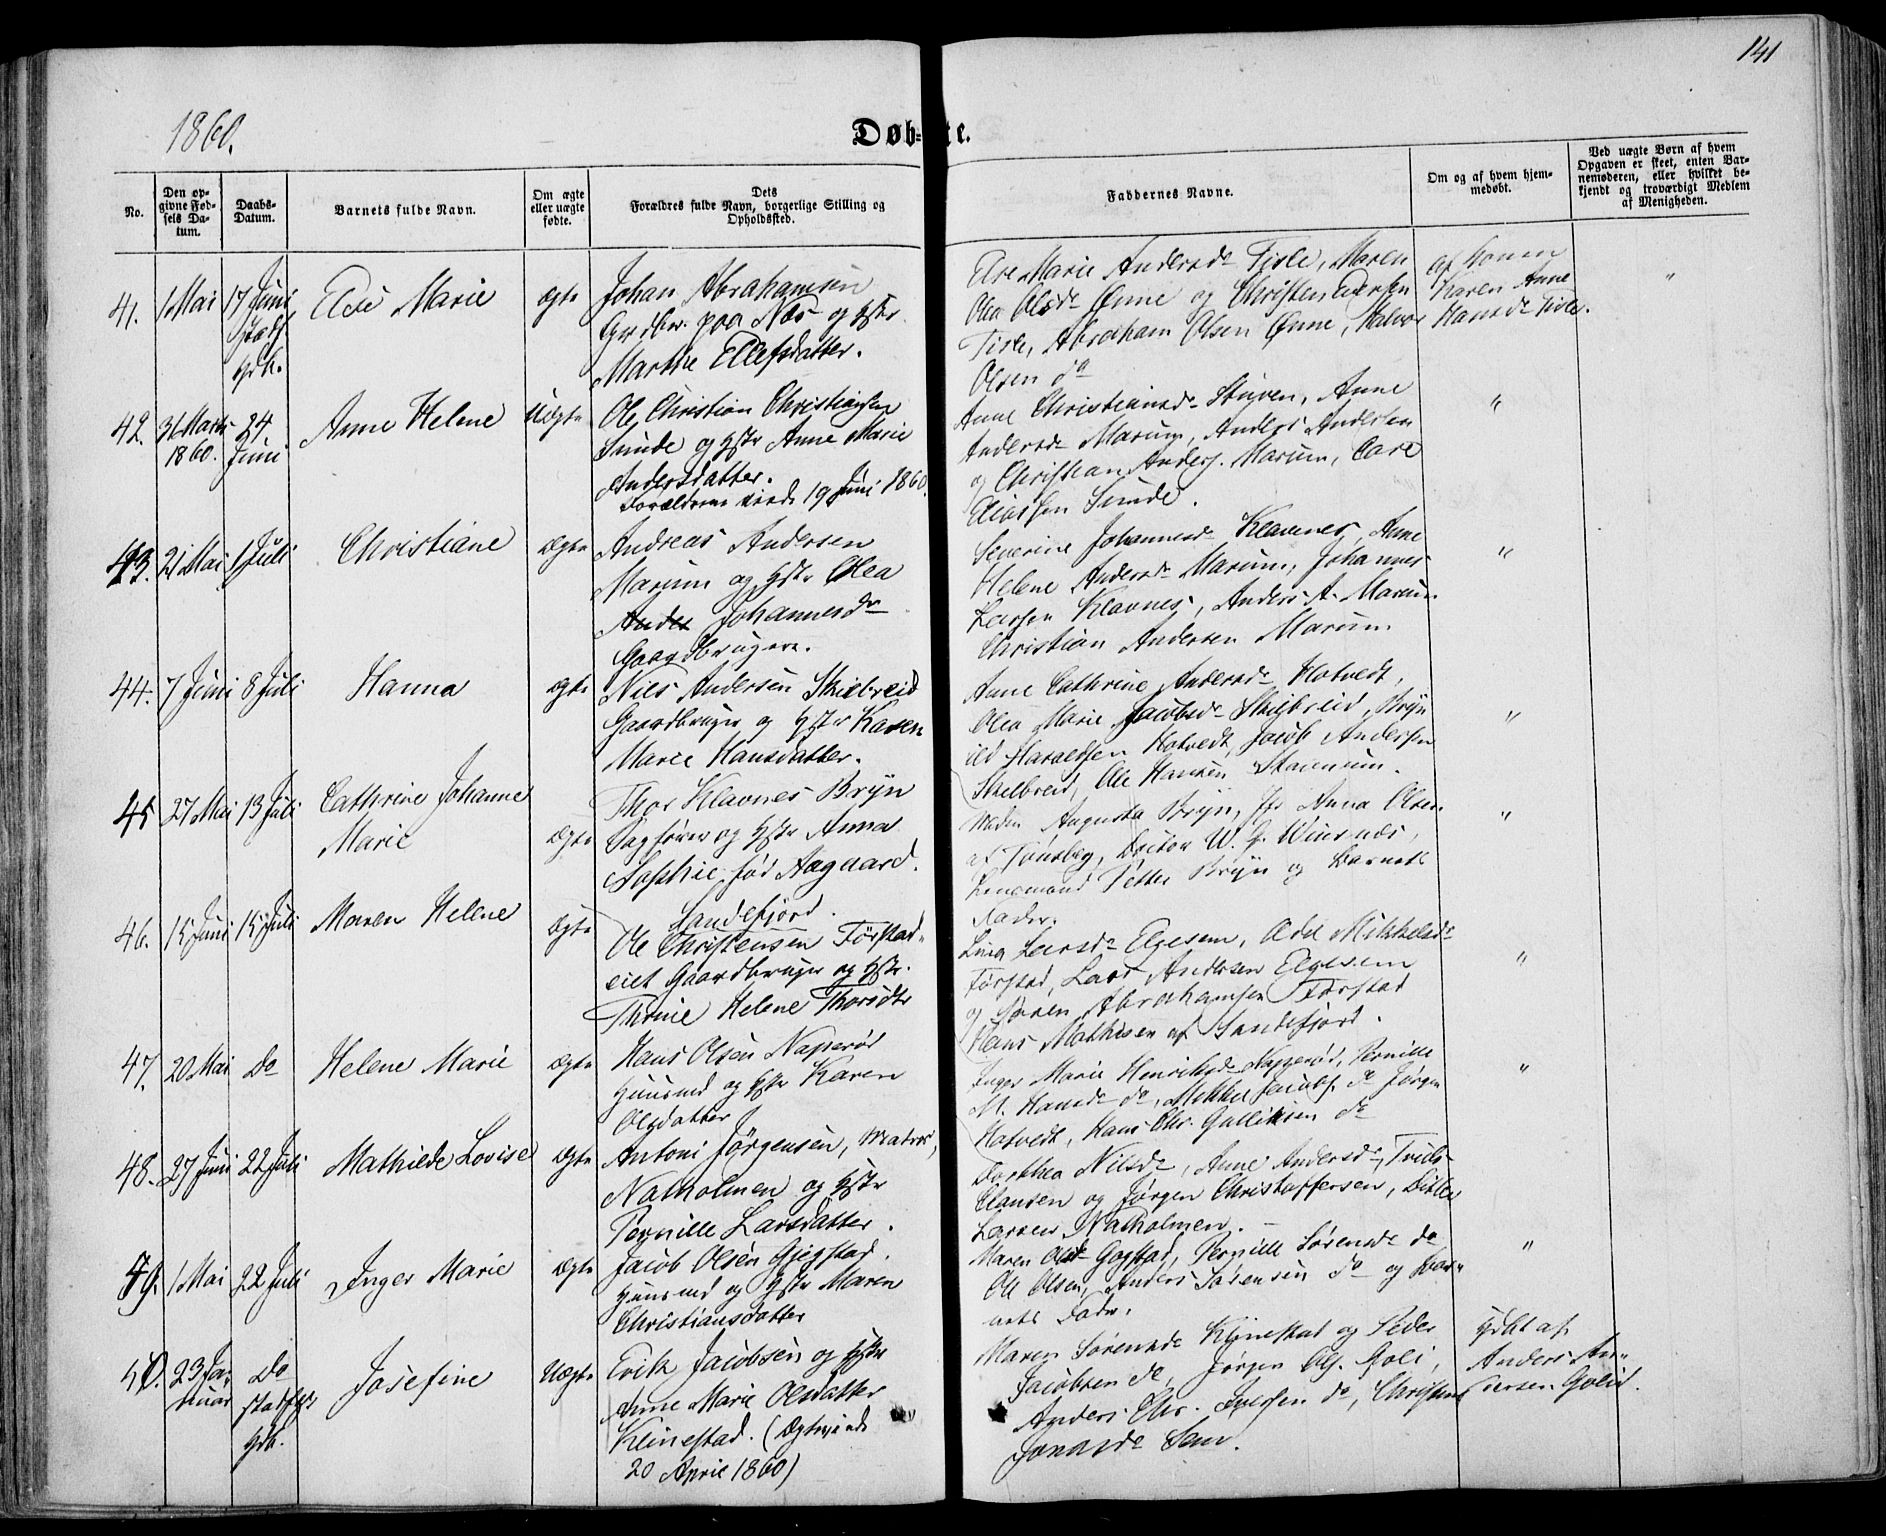 141
1860.
Døbte.
No.
Den opgivne Fødsels Datum.
Daabs-Datum.
Barnets fulde Navn.
Om ægte eller uægte fødte.
Dets Forældres fulde Navn, borgerlige Stilling og Opholdssted.
Faddernes Navne.
Om og af hvem hjemmedøbt.
Ved uægte Børn af hvem Opgaven er skeet, enten Barnemøderen, eller hvilket bekjendt og troværdigt Medlem af Menigheden.
41. 1 Mai 17 Juni Else Marie ægte
Johan Abrahamsen
Grdbr. paa Næs og Hstr
Marthe Ellefsdatter.
Else Marie Andersdr Fisle, Maren
Olea Olsdr Ønne og Christen
Fisle, Abraham Olsen Ønne, Halvor
Olsen do
af Konen
Karen Anne
Hansdr Fisle.
"
42. 31 Marts 1860. 24 Juni Anne Helene Uægte
Ole Christian Christiansen
Sunde og Hstr Anne Marie
Andersdatter.
Forældrene viede 19 Juni 1860.
Anne Christiansdr Stuven, Anne
Andersdr Marum, Anders Andersen
og Christian Anders. Marum, Carl
Eliassen Sunde.
"
43. 21 Mai 1 Juli Christiane ægte
Andreas Andersen
Marum og Hstr Olea
Andes Johannesdr
Gaardbrugere.
Severine Johannesdr Klavnes, Anne
Helene Andersdr Marum, Johannes
Larsen Klavnes, Anders A. Marum
Christian Andersen Marum
"
44. 7 Juni 8 Juli Hanna ægte
Nils Andersen Skielbreid
Gaardbruger og Hstr Karen
Marie Hansdatter.
Anne Cathrine Andersdr Hotvedt,
Olea Marie Jacobsdr Skielbreid, Bryn
ild Haraldsen Hotvedt, Jacob Andersen
Skielbreid, Ole Hansen
"
45 27 Mai 13 Juli Cathrine Johanne
Marie ægte
Thor Klavnes Bryn
Sagfører og Hstr Anna
Sophie fød Aagaard.
Sandefjord.
Madm Augusta Bryn, Jfr Anna Olsen
af Tønsberg, Doctor W. G. Winsnæs,
Lensmand Petter Bryn og Barnets
Fader.
"
46. 15 Juni 15 Juli Maren Helene ægte
Ole Christensen Førstad
eiet Gaardbruger og Hstr.
Thrine Helene Thorsdtr
Lina Larsdr Elgesem, Edel Mikkelsdr
Førstad, Lars Andersen Elgesem
og Søren Abrahamsen Førstad
Hans Mathisen af Sandefjord.
"
47. 20 Mai Do Helene Marie ægte
Hans Olsen Naperød
Huusmd og Hstr Karen
Olsdatter
Inger Marie Henriksdr Napperød, Pernille
M. Hansdr do, Mikkel Jacobs. do Jørgen
Hotvedt, Hans Chr. Gulliksen do
"
48. 27 Juni 22 Juli Mathilde Lovise ægte
Antoni Jørgensen, Matros,
Natholmen og Hstr
Pernille Larsdatter.
Dorthea Nilsdr, Anne Andersdr, Truls
Clausen og Jørgen Christoffersen, Ditlev
Larsen Natholmen.
49. 1 Mai 22 Juli Inger Marie ægte
Jacob Olsen Gjegstad.
Huusmd og Hstr Maren
Christiansdatter
Maren Olsdr Gogstad, Pernille Sørensdr do
Ole Olsen, Anders Sørensen do og Bar-
nets Fader.
"
50. 23 Januar Do Josefine Uægte
stadfst
Hdb.
Erik Jacobsen og Hstr
Anne Marie Olsdatter
Klinestad. (Ægteviede
20 April 1860)
Maren Sørensdr Klinestad og Peder
Jacobsen do, Jørgen Ols. Goli,
Anders Chr. do, Christine
Jonasdr Sem.
Hdbt af
Anders An-
dersen Goli.